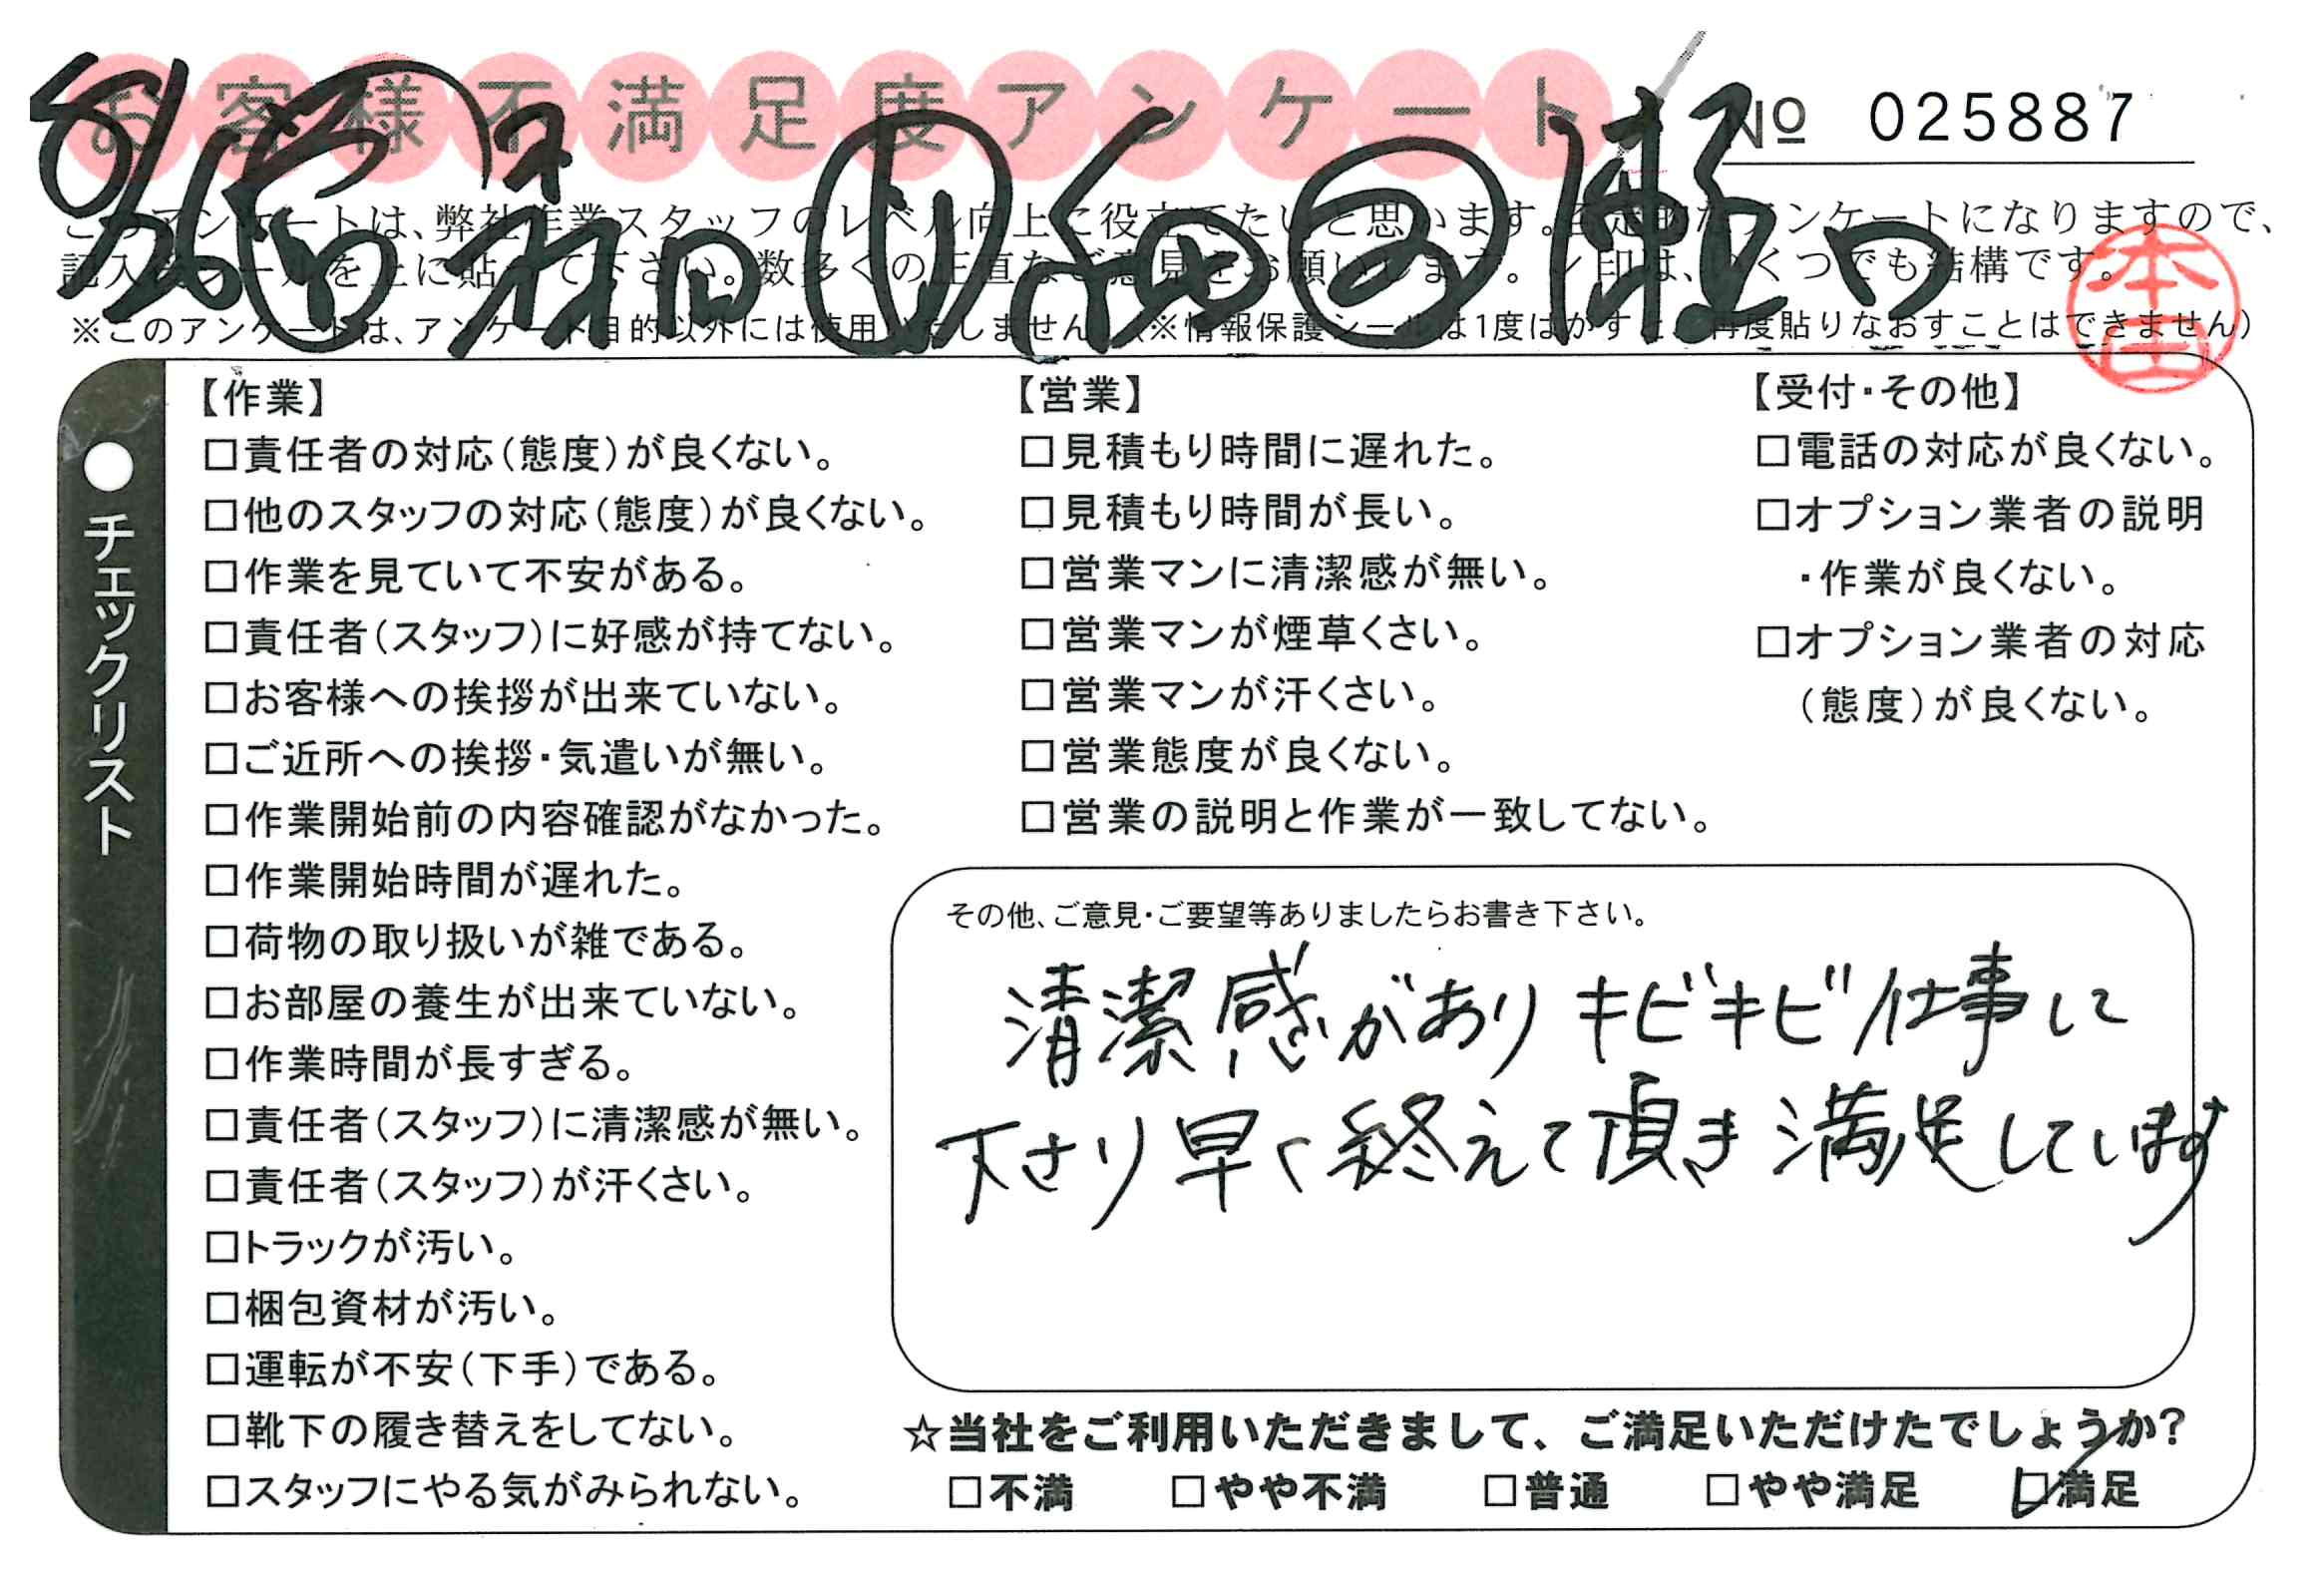 お客様不満足度アンケート
№ 025887
8/26
このアンケートは、弊社作業スタッフのレベル向上に役立てたいと思います。否定的なアンケートになりますので、
記入後シールを上に貼って下さい。数多くの正直なご意見をお願いします。レ印は、いくつでも結構です。
※このアンケートは、アンケート目的以外には使用いたしません。(※情報保護シールは1度はがすと、再度貼りなおすことはできません)
本田
●チェックリスト
【作業】
□責任者の対応(態度)が良くない。
□他のスタッフの対応(態度)が良くない。
□作業を見ていて不安がある。
□責任者(スタッフ)に好感が持てない。
□お客様への挨拶が出来ていない。
□ご近所への挨拶・気遣いが無い。
□作業開始前の内容確認がなかった。
□作業開始時間が遅れた。
□荷物の取り扱いが雑である。
□お部屋の養生が出来ていない。
□作業時間が長すぎる。
□責任者(スタッフ)に清潔感が無い。
□責任者(スタッフ)が汗くさい。
□トラックが汚い。
□梱包資材が汚い。
□運転が不安(下手)である。
□靴下の履き替えをしてない。
□スタッフにやる気がみられない。
【営業】
□見積もり時間に遅れた。
□見積もり時間が長い。
□営業マンに清潔感が無い。
□営業マンが煙草くさい。
□営業マンが汗くさい。
□営業態度が良くない。
□営業の説明と作業が一致してない。
【受付・その他】
□電話の対応が良くない。
□オプション業者の説明
・作業が良くない。
□オプション業者の対応
(態度)が良くない。
その他、ご意見・ご要望等ありましたらお書き下さい。
清潔感がありキビキビ仕事して
下さり早く終えて頂き満足しています
☆当社をご利用いただきまして、ご満足いただけたでしょうか?
□不満 □やや不満 □普通 □やや満足 ☑満足